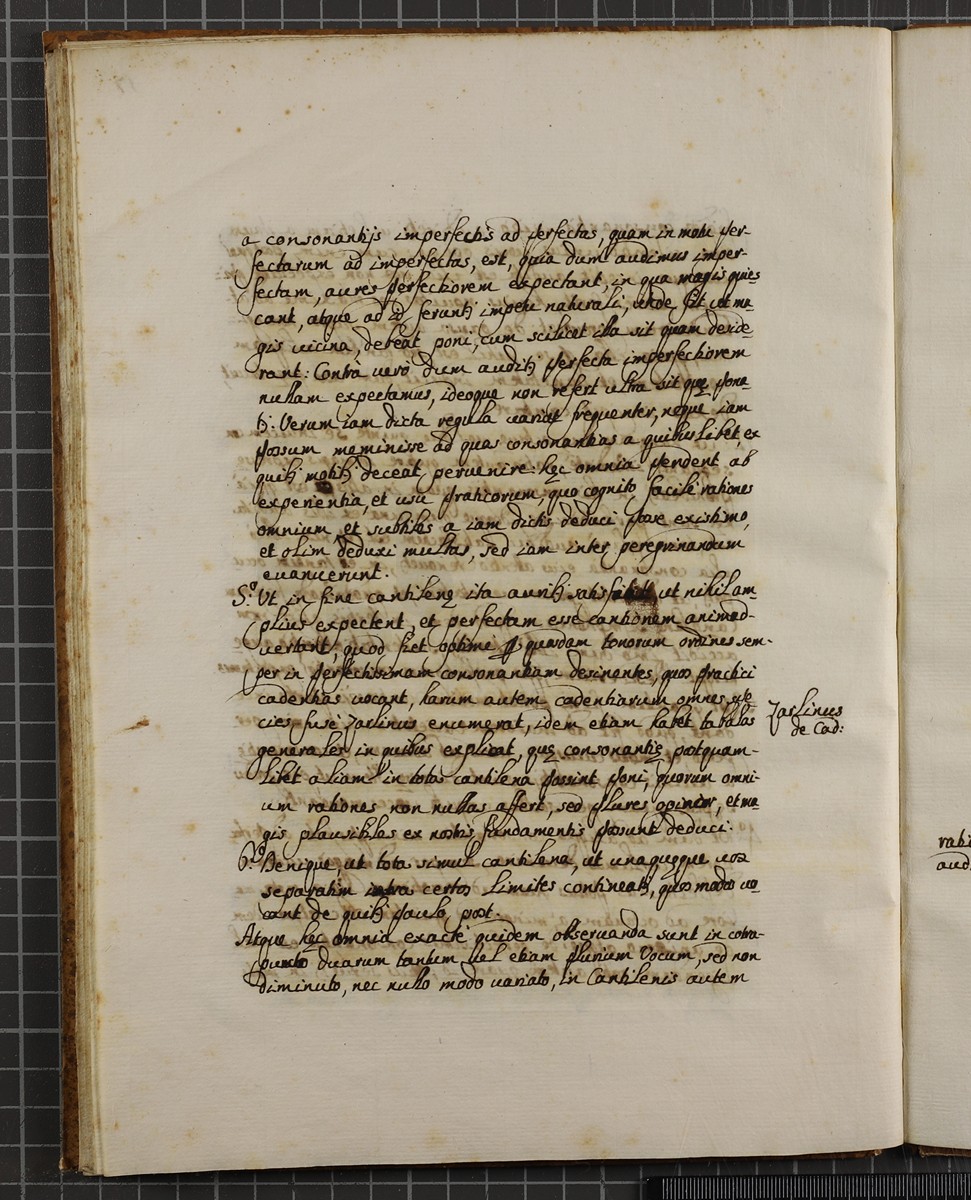 a consonantijs imperfectis ad perfectas, quam in motu per-
fectarum ad imperfectas, est, quia dum audimus imper-
fectam, aures perfectiorem expectant, in qua magis quies
cant, atque ad id feruntʒ impetu naturali, unde fit ut ma-
gis uicina, debeat poni, cum scilicet illa sit quam deside-
rant: Contrà uerò dum auditʒ perfecta imperfectiorem
nullam expectamus, ideoque non refert ultra sit quę pona-
tʒ. Verum iam dicta regula uariat frequenter, neque iam
possum meminisse ad quas consonantias a quibus libet, ex
quibʒ motibʒ deceat peruenire: hęc omnia pendent ab
experientia, et usu praticorum, quo cognito, facilè rationes
omnium et subtiles a iam dictis deduci posse existimo,
et olim deduxi multas, sed iam inter peregrinandum
euanuerunt.
5.º Ut in fine cantilenę ita auribʒ satisfiat ut nihil am-
plius expectent, et perfectam esse cantionem animad-
uertant, quod fiet optimè ꝑ quosdam tonorum ordines sem-
per in perfectissimam consonantiam desinentes, quos practici
cadentias uocant, harum autem cadentiarum omnes spe
cies fusè Zarlinus enumerat, idem etiam habet tabulas
generales in quibus explicat, quę consonantię postquam-
libet aliam in tota cantilena possint poni, quorum omni-
um rationes non nullas affert, sed plures opinior, et ma
gis plausibiles ex nostris fundamentis possunt deduci.
6.º Denique, ut tota simul cantilena, ut unaquęque uox
separatim intra certos limites contineatʒ, quos modos uo-
cant de quibʒ paulo, post.
Atque hęc omnia exactè quidem obseruanda sunt in cotra-
puncto duarum tantum uel etiam plurium Vocum, sed non
diminuto, nec nullo modo uariato, in Cantilenis autem
Zarlinus
de Cad: